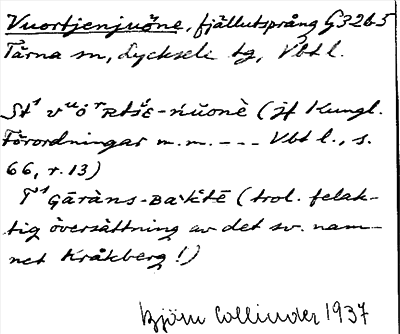 Vuortjenjuöne, fjällutsprång G32b5
Tärna sn, Lycksele tg, Vbt l.
St¹ vᵘȯʳRtšɛ-ńŭonè (jf Kungl.
Förordningar m.m. --- Vbt l., s.
66, r. 13)
T¹ Gāràns-Bàktē (trol. felak-
tig översättning av det sv. nam-
net Kråkberg!)
Björn Collinder 1937